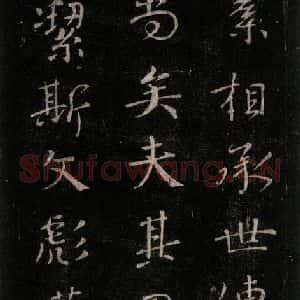 相承世
尚矣夫其
潔斯文彪
Shufawang.CN